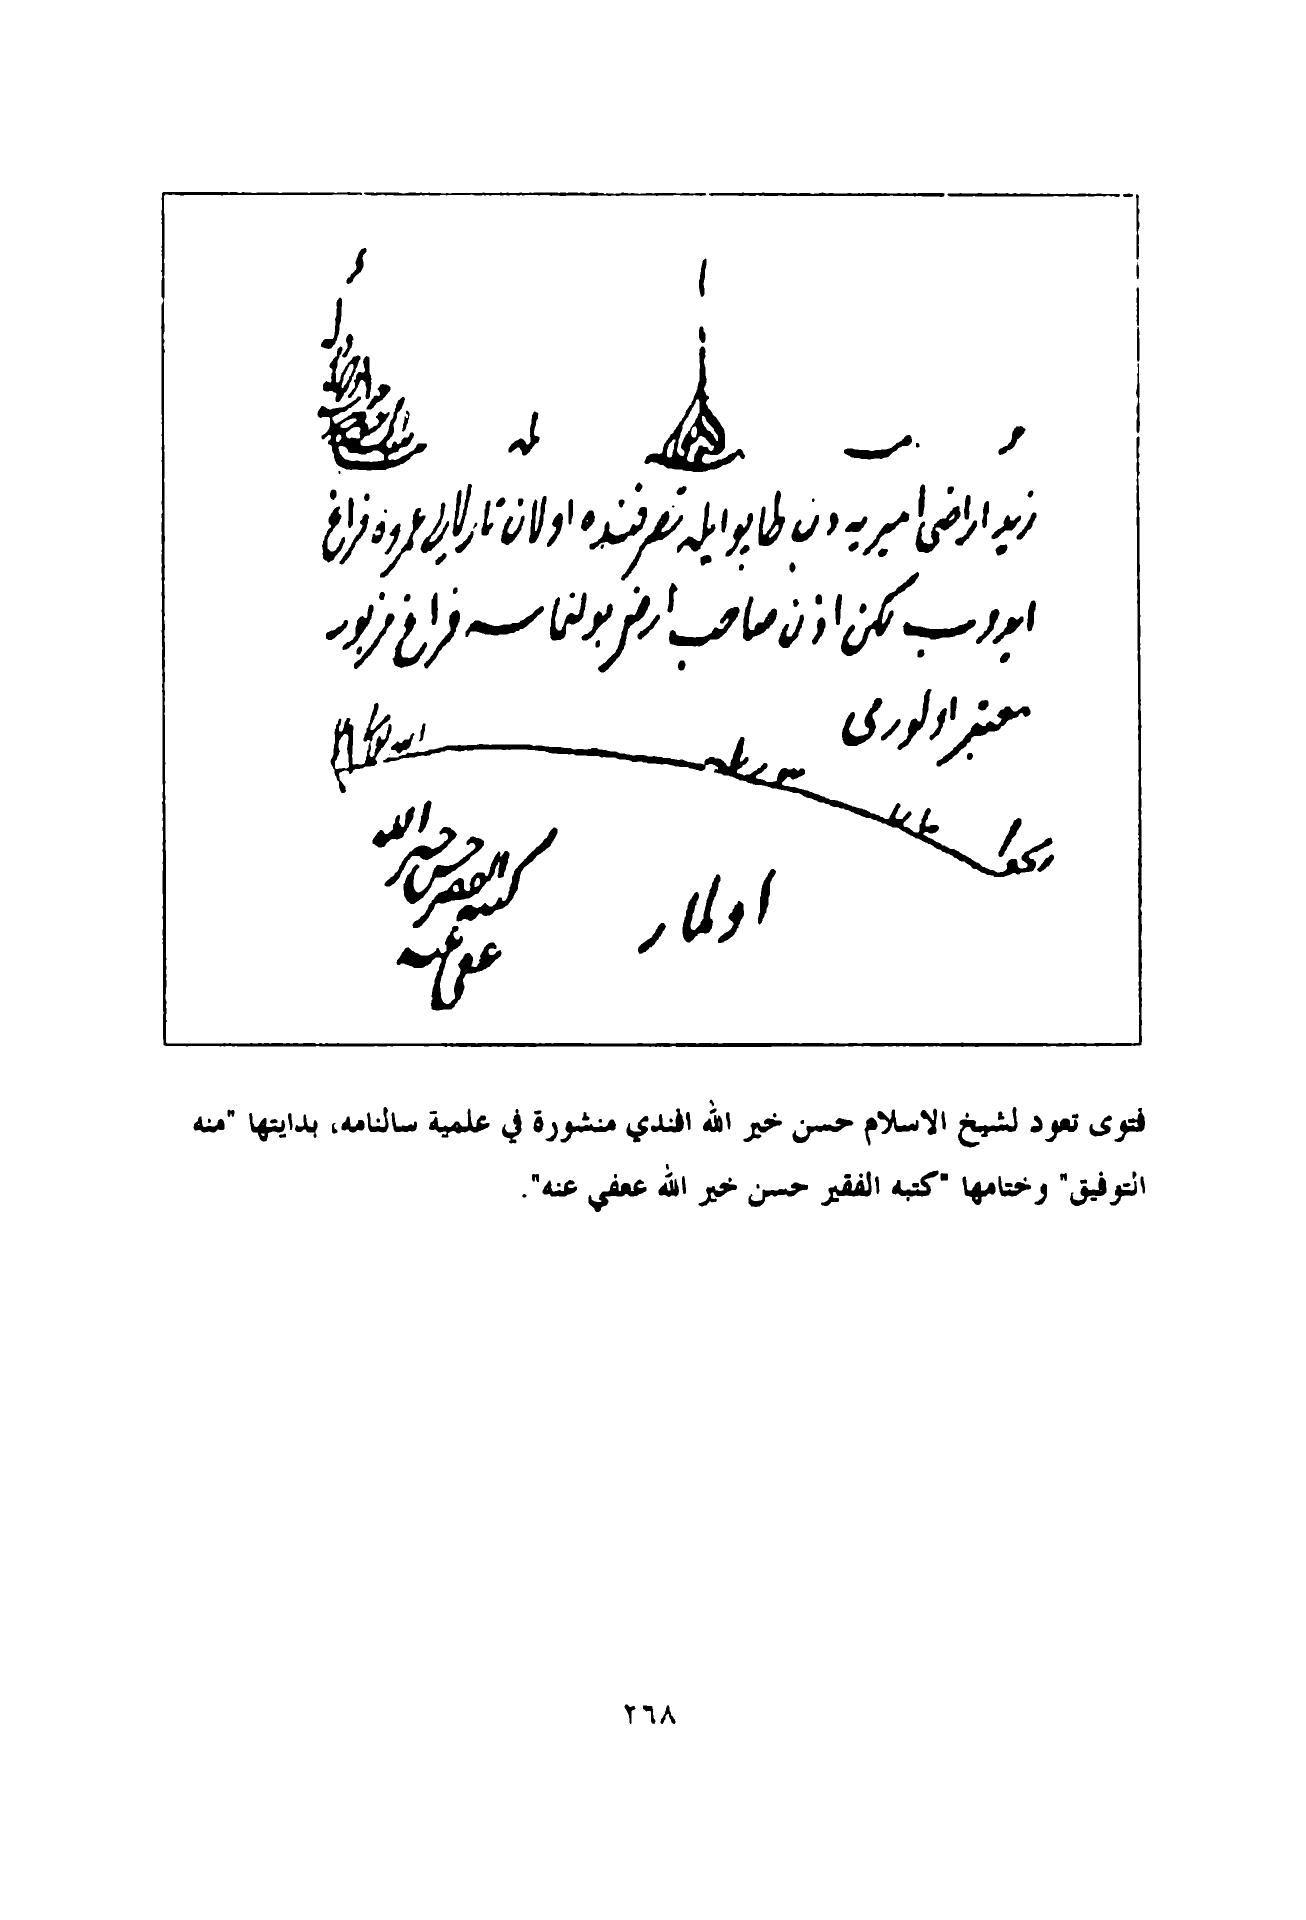 زيد اراضى اميريه دن طابو ايله تصرفنده اولان تارلالرى عمروه فراغ
ايدوب لكن اذن صاحب ارض بولنماسه فراغ مزبور
معتبر اولورمى
اولماز
كتبه الفقير حسن خير الله
عفى عنه
فتوى تعود لشيخ الاسلام حسن خير الله افندي منشورة في علمية سالنامه، بدايتها "منه
التوفيق" وختامها "كتبه الفقير حسن خير الله ععفي عنه".
٢٦٨